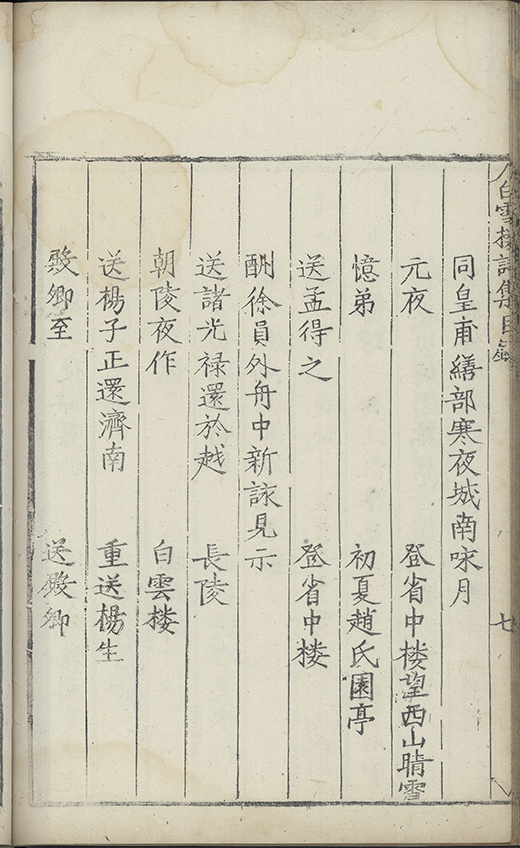 白雲樓詩集目錄 七
同皇甫繕部寒夜城南咏月
元夜 登省中楼望西山晴雪
憶弟 初夏趙氏園亭
送孟得之 登省中楼
酬徐員外舟中新詠見示
送諸光禄還於越 長陵
朝陵夜作 白雲楼
送楊子正還濟南 重送楊生
殿卿至 送殿卿